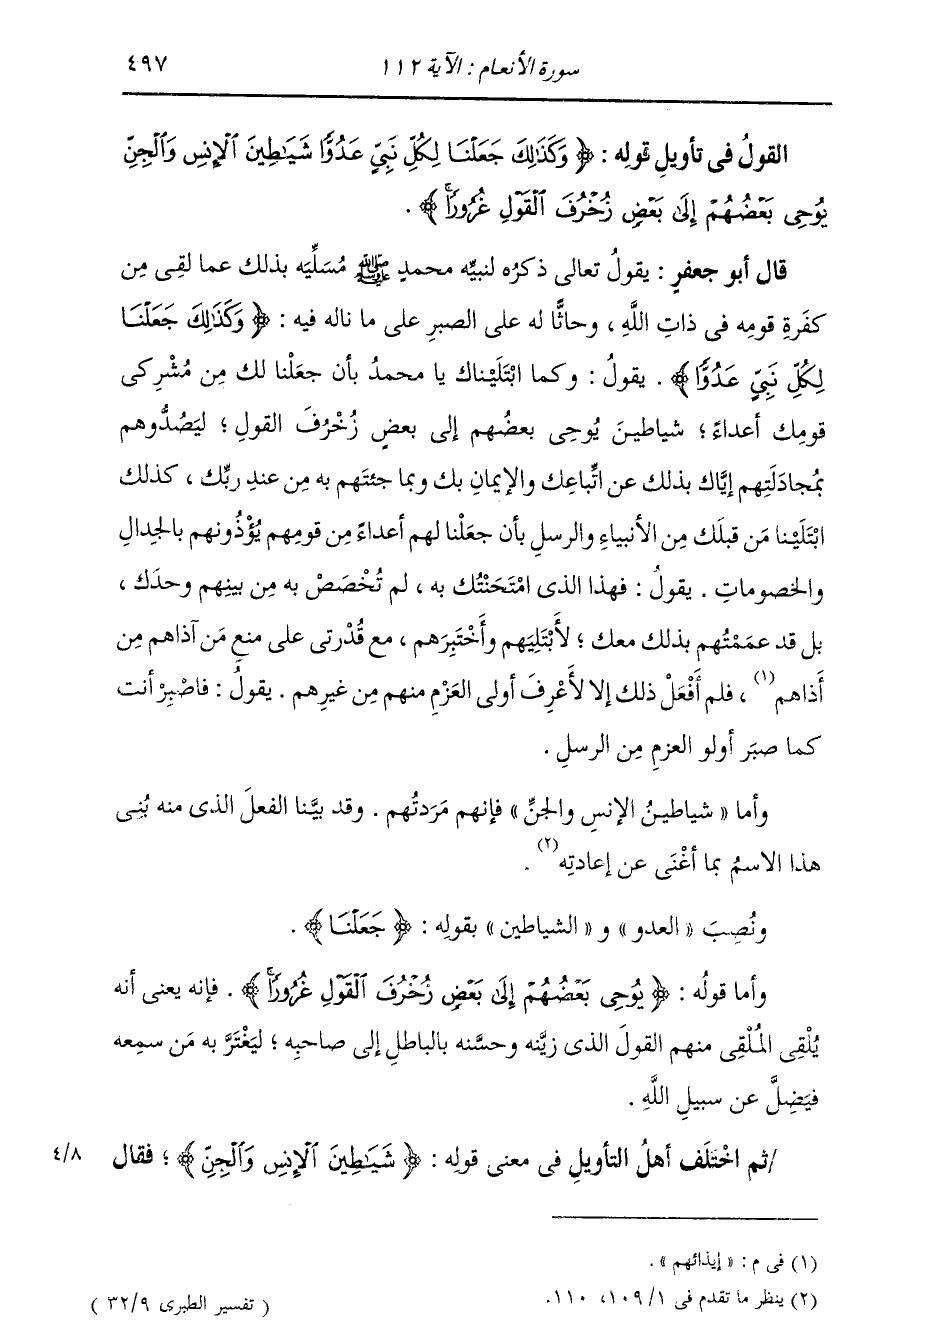 سورة الأنعام : الآية ١١٢ ٤٩٧
القولُ فى تأويلِ قولِه : ﴿ وَكَذَٰلِكَ جَعَلْنَا لِكُلِّ نَبِيٍّ عَدُوًّا شَيَٰطِينَ ٱلْإِنسِ وَٱلْجِنِّ
يُوحِى بَعْضُهُمْ إِلَىٰ بَعْضٍ زُخْرُفَ ٱلْقَوْلِ غُرُورًاۚ ﴾ .
قال أبو جعفرٍ : يقولُ تعالى ذكرُه لنبيِّه محمدٍ ﷺ مُسَلِّيَه بذلك عما لقِى مِن
كفَرةِ قومِه فى ذاتِ اللَّهِ ، وحاثًّا له على الصبرِ على ما ناله فيه : ﴿ وَكَذَٰلِكَ جَعَلْنَا
لِكُلِّ نَبِيٍّ عَدُوًّا ﴾ . يقولُ : وكما ابْتَلَيْناك يا محمدُ بأن جعَلْنا لك مِن مُشْرِكى
قومِك أعداءً ؛ شياطينَ يُوحِى بعضُهم إلى بعضٍ زُخْرُفَ القولِ ؛ ليَصُدُّوهم
بمُجادَلَتِهم إيَّاك بذلك عن اتِّباعِك والإيمانِ بك وبما جئتَهم به مِن عندِ ربِّك ، كذلك
ابْتَلَيْنا مَن قبلَك مِن الأنبياءِ والرسلِ بأن جعَلْنا لهم أعداءً مِن قومِهم يُؤْذُونهم بالجِدالِ
والخصوماتِ . يقولُ : فهذا الذى امْتَحَنْتُك به ، لم تُخْصَصْ به مِن بينِهم وحدَك ،
بل قد عمَمْتُهم بذلك معك ؛ لأَبْتَلِيَهم وأَخْتَبِرَهم ، مع قُدْرتى على منعِ مَن آذاهم مِن
أَذاهم(١) ، فلم أَفْعَلْ ذلك إلا لأَعْرِفَ أولى العَزْمِ منهم مِن غيرِهم . يقولُ : فاصْبِرْ أنت
كما صبَر أولو العزمِ مِن الرسلِ .
وأما « شياطينُ الإنسِ والجنِّ » فإنهم مَرَدتُهم . وقد بيَّنا الفعلَ الذى منه بُنِى
هذا الاسمُ بما أغْنَى عن إعادتِه(٢) .
ونُصِبَ « العدو » و « الشياطين » بقولِه : ﴿ جَعَلْنَا ﴾ .
وأما قولُه : ﴿ يُوحِى بَعْضُهُمْ إِلَىٰ بَعْضٍ زُخْرُفَ ٱلْقَوْلِ غُرُورًاۚ ﴾ . فإنه يعنى أنه
يُلْقِى المُلْقِى منهم القولَ الذى زيَّنه وحسَّنه بالباطلِ إلى صاحبِه ؛ ليَغْتَرَّ به مَن سمِعه
فيَضِلَّ عن سبيلِ اللَّهِ .
/ثم اخْتَلَف أهلُ التأويلِ فى معنى قولِه : ﴿ شَيَٰطِينَ ٱلْإِنسِ وَٱلْجِنِّ ﴾ ؛ فقال ٤/٨
(١) فى م : « إيذائهم » .
(٢) ينظر ما تقدم فى ١٠٩/١، ١١٠.
( تفسير الطبرى ٣٢/٩ )